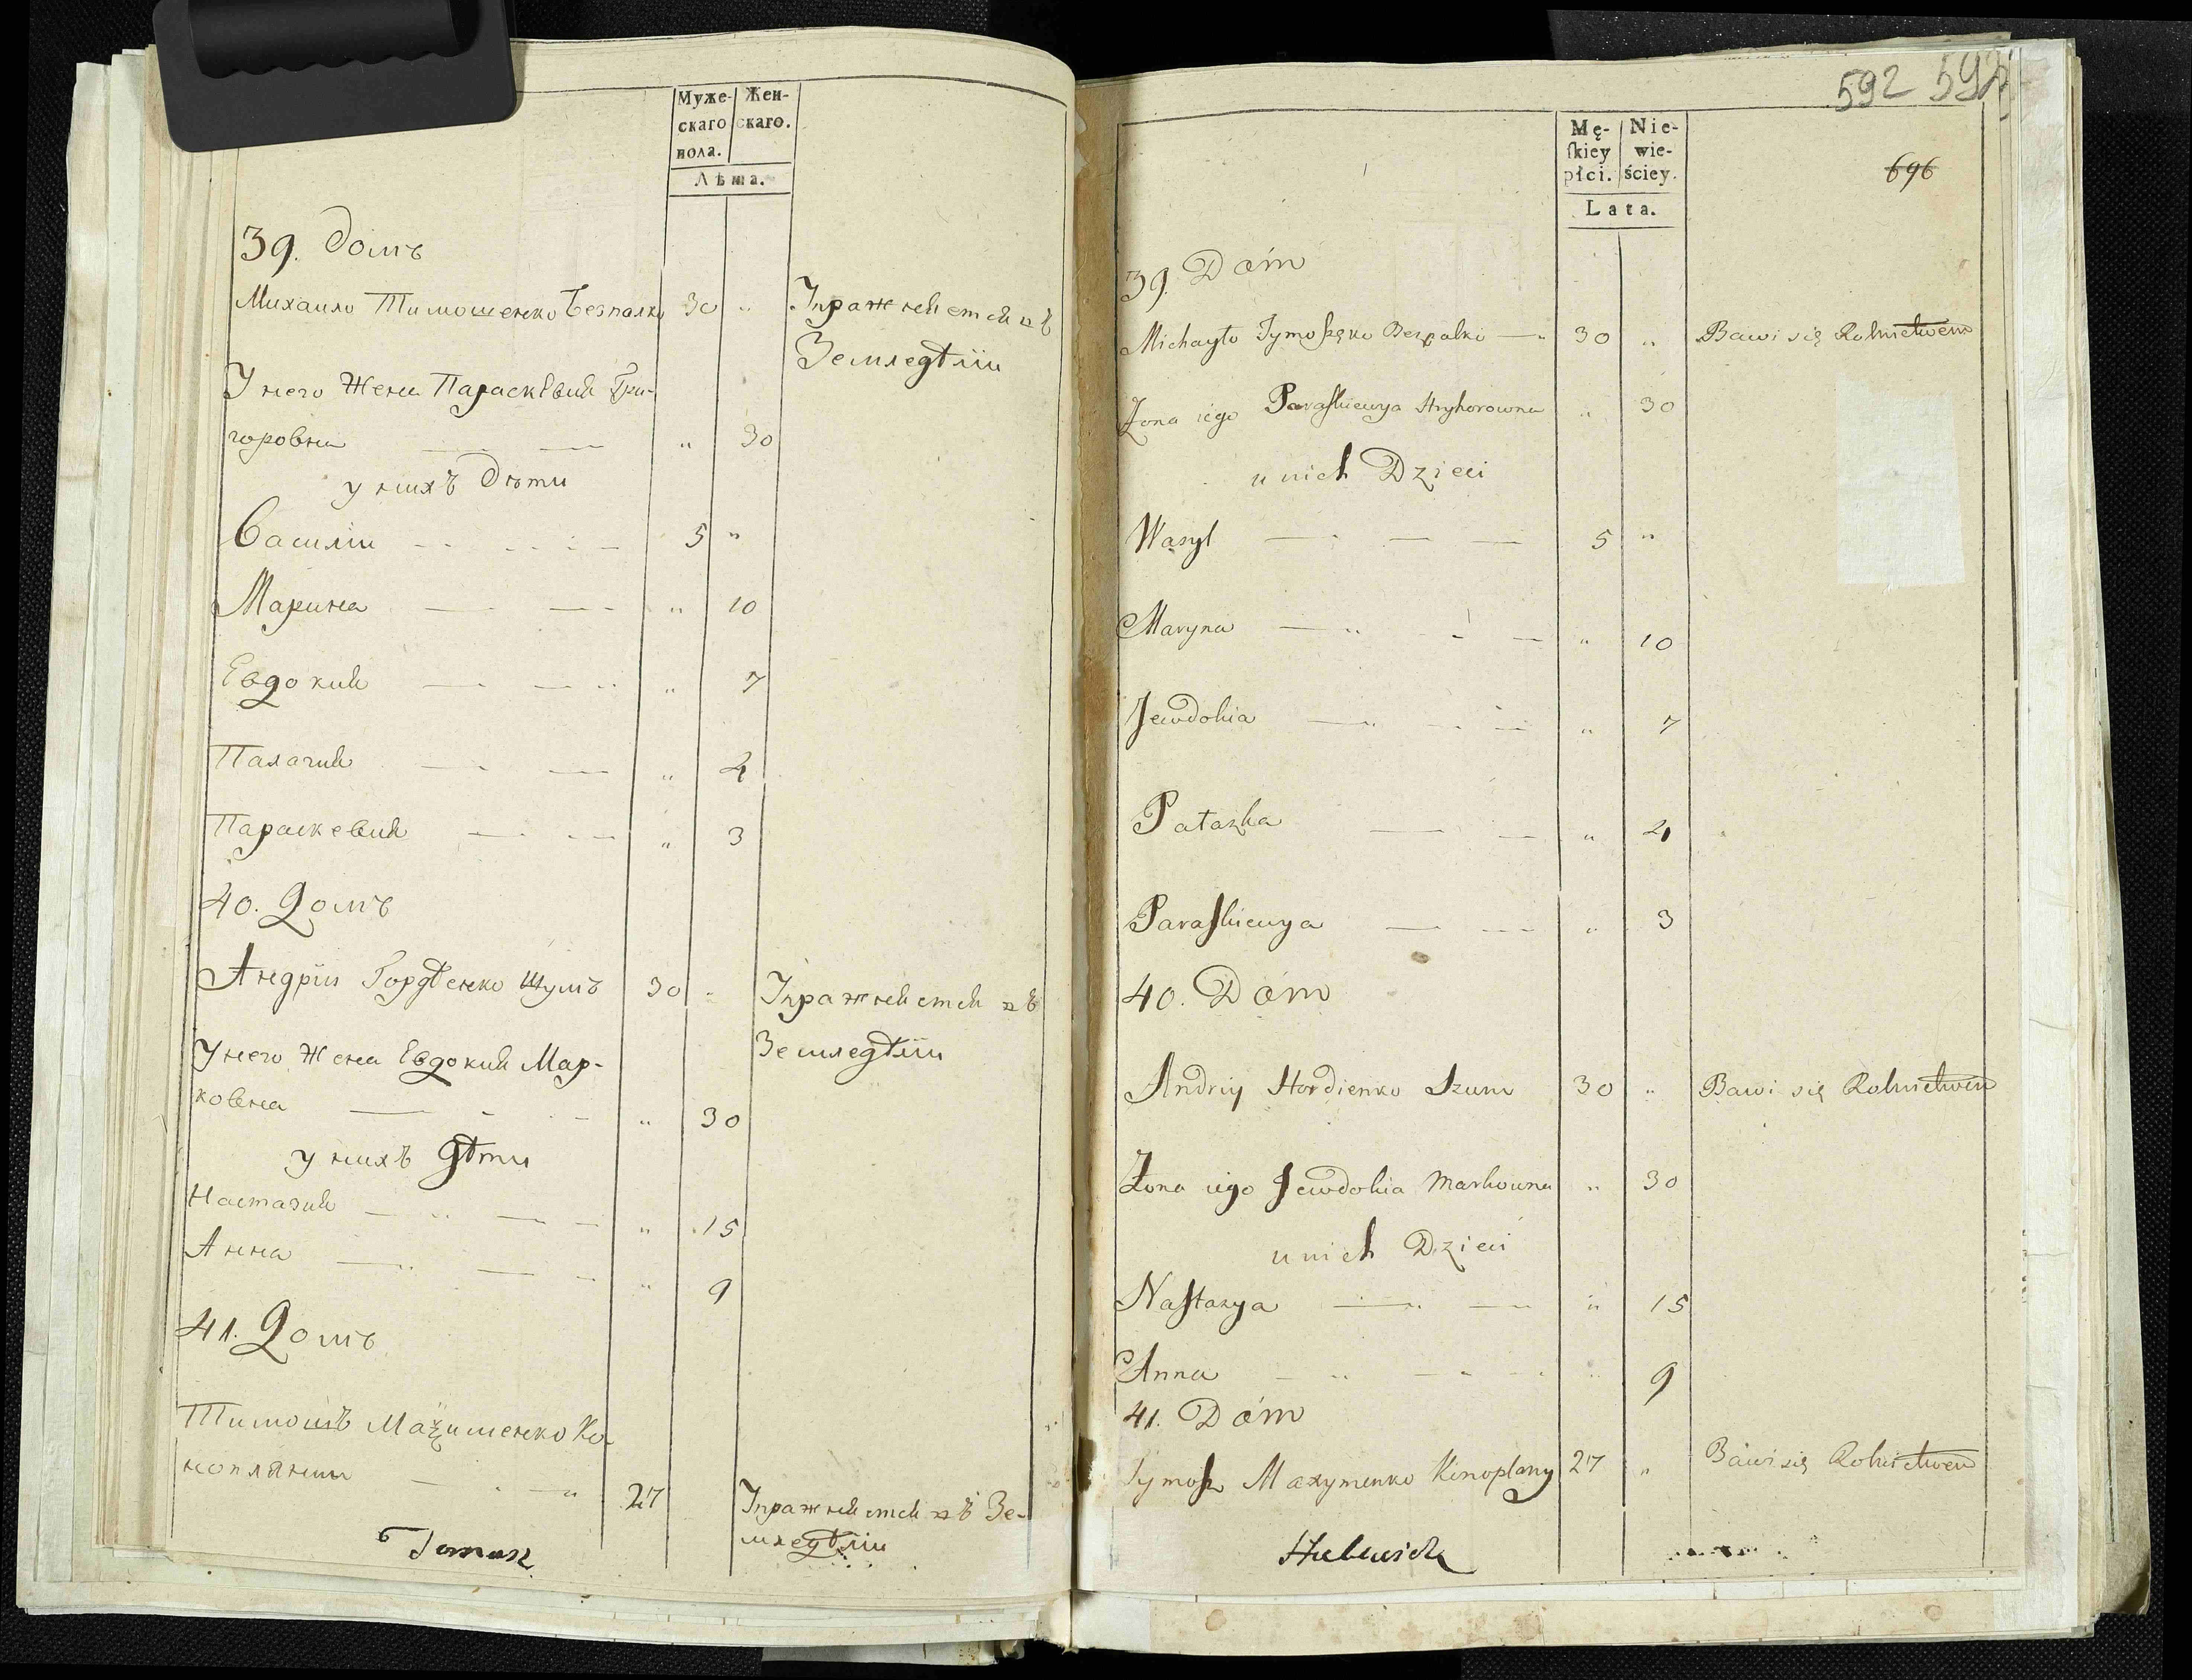 Муже- Жен-
скаго скаго.
пола.
Лѣта.
39. Домъ
Михаило Тимошенко Безпалко 30 „ Упражняется въ
Земледѣліи
У него Жена Параскѣвия Гри-
горовна „ 30
у нихъ Дѣти
Василіи 5 „
Марина „ 10
Евдокия „ 7
Палагия „ 4
Параскевия „ 3
40. Домъ
Андріи Гордѣенко Шумъ 30 „ Упражняется въ
Земледѣліи
У него Жена Евдокия Мар-
ковна „ 30
у нихъ дѣти
Настазия „ 15
Анна „ 9
41. Домъ
Тимошъ Маѯименко Ко
нопляны 27 Упражняется въ Зе-
мледѣліи
Tomasz
592
696
Mę- Nie-
ſkiey wie-
płci. ściey.
Lata.
39. Dóm
Michayło Tymoszęko Bezpalko 30 „ Bawi się Rolnictwem
Żona iego Paraſkiewya Hryhorowna „ 30
u nich Dzieci
Wasyl 5 „
Maryna „ 10
Jewdokia „ 7
Pałazka „ 4
Paraſkiewya „ 3
40. Dóm
Andriy Hordienko Szum 30 „ Bawi się Rolnictwem
Żona iego Jewdokia Markowna „ 30
u nich Dzieci
Naſtazya „ 15
Anna „ 9
41. Dóm
Tymosz Maxymenko Konoplany 27 „ Bawi się Rolnictwem